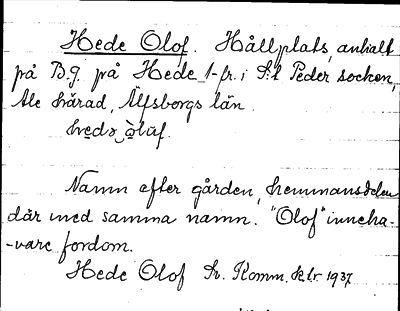 Hede Olof. Hållplats, anhalt
på B.g. på Hede 1 fr. i S:t Peder socken,
Ale härad, Älfsborgs län.
hedə òluf.
Namn efter gården, hemmansdelen
där med samma namn. "Olof" inneha-
-vare fordom.
Hede Olof Sv. Komm. klr 1937